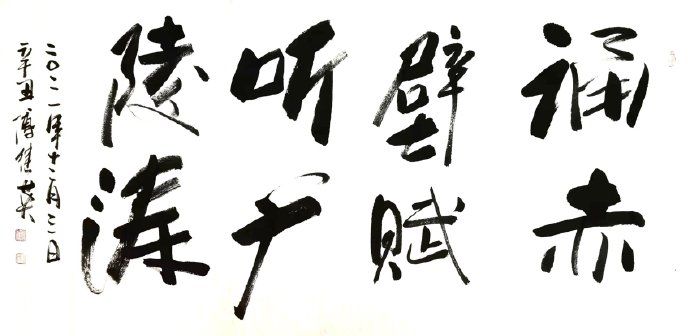 诵赤
壁赋
听广
陵涛
二〇二一年十二月三日
辛丑傅英